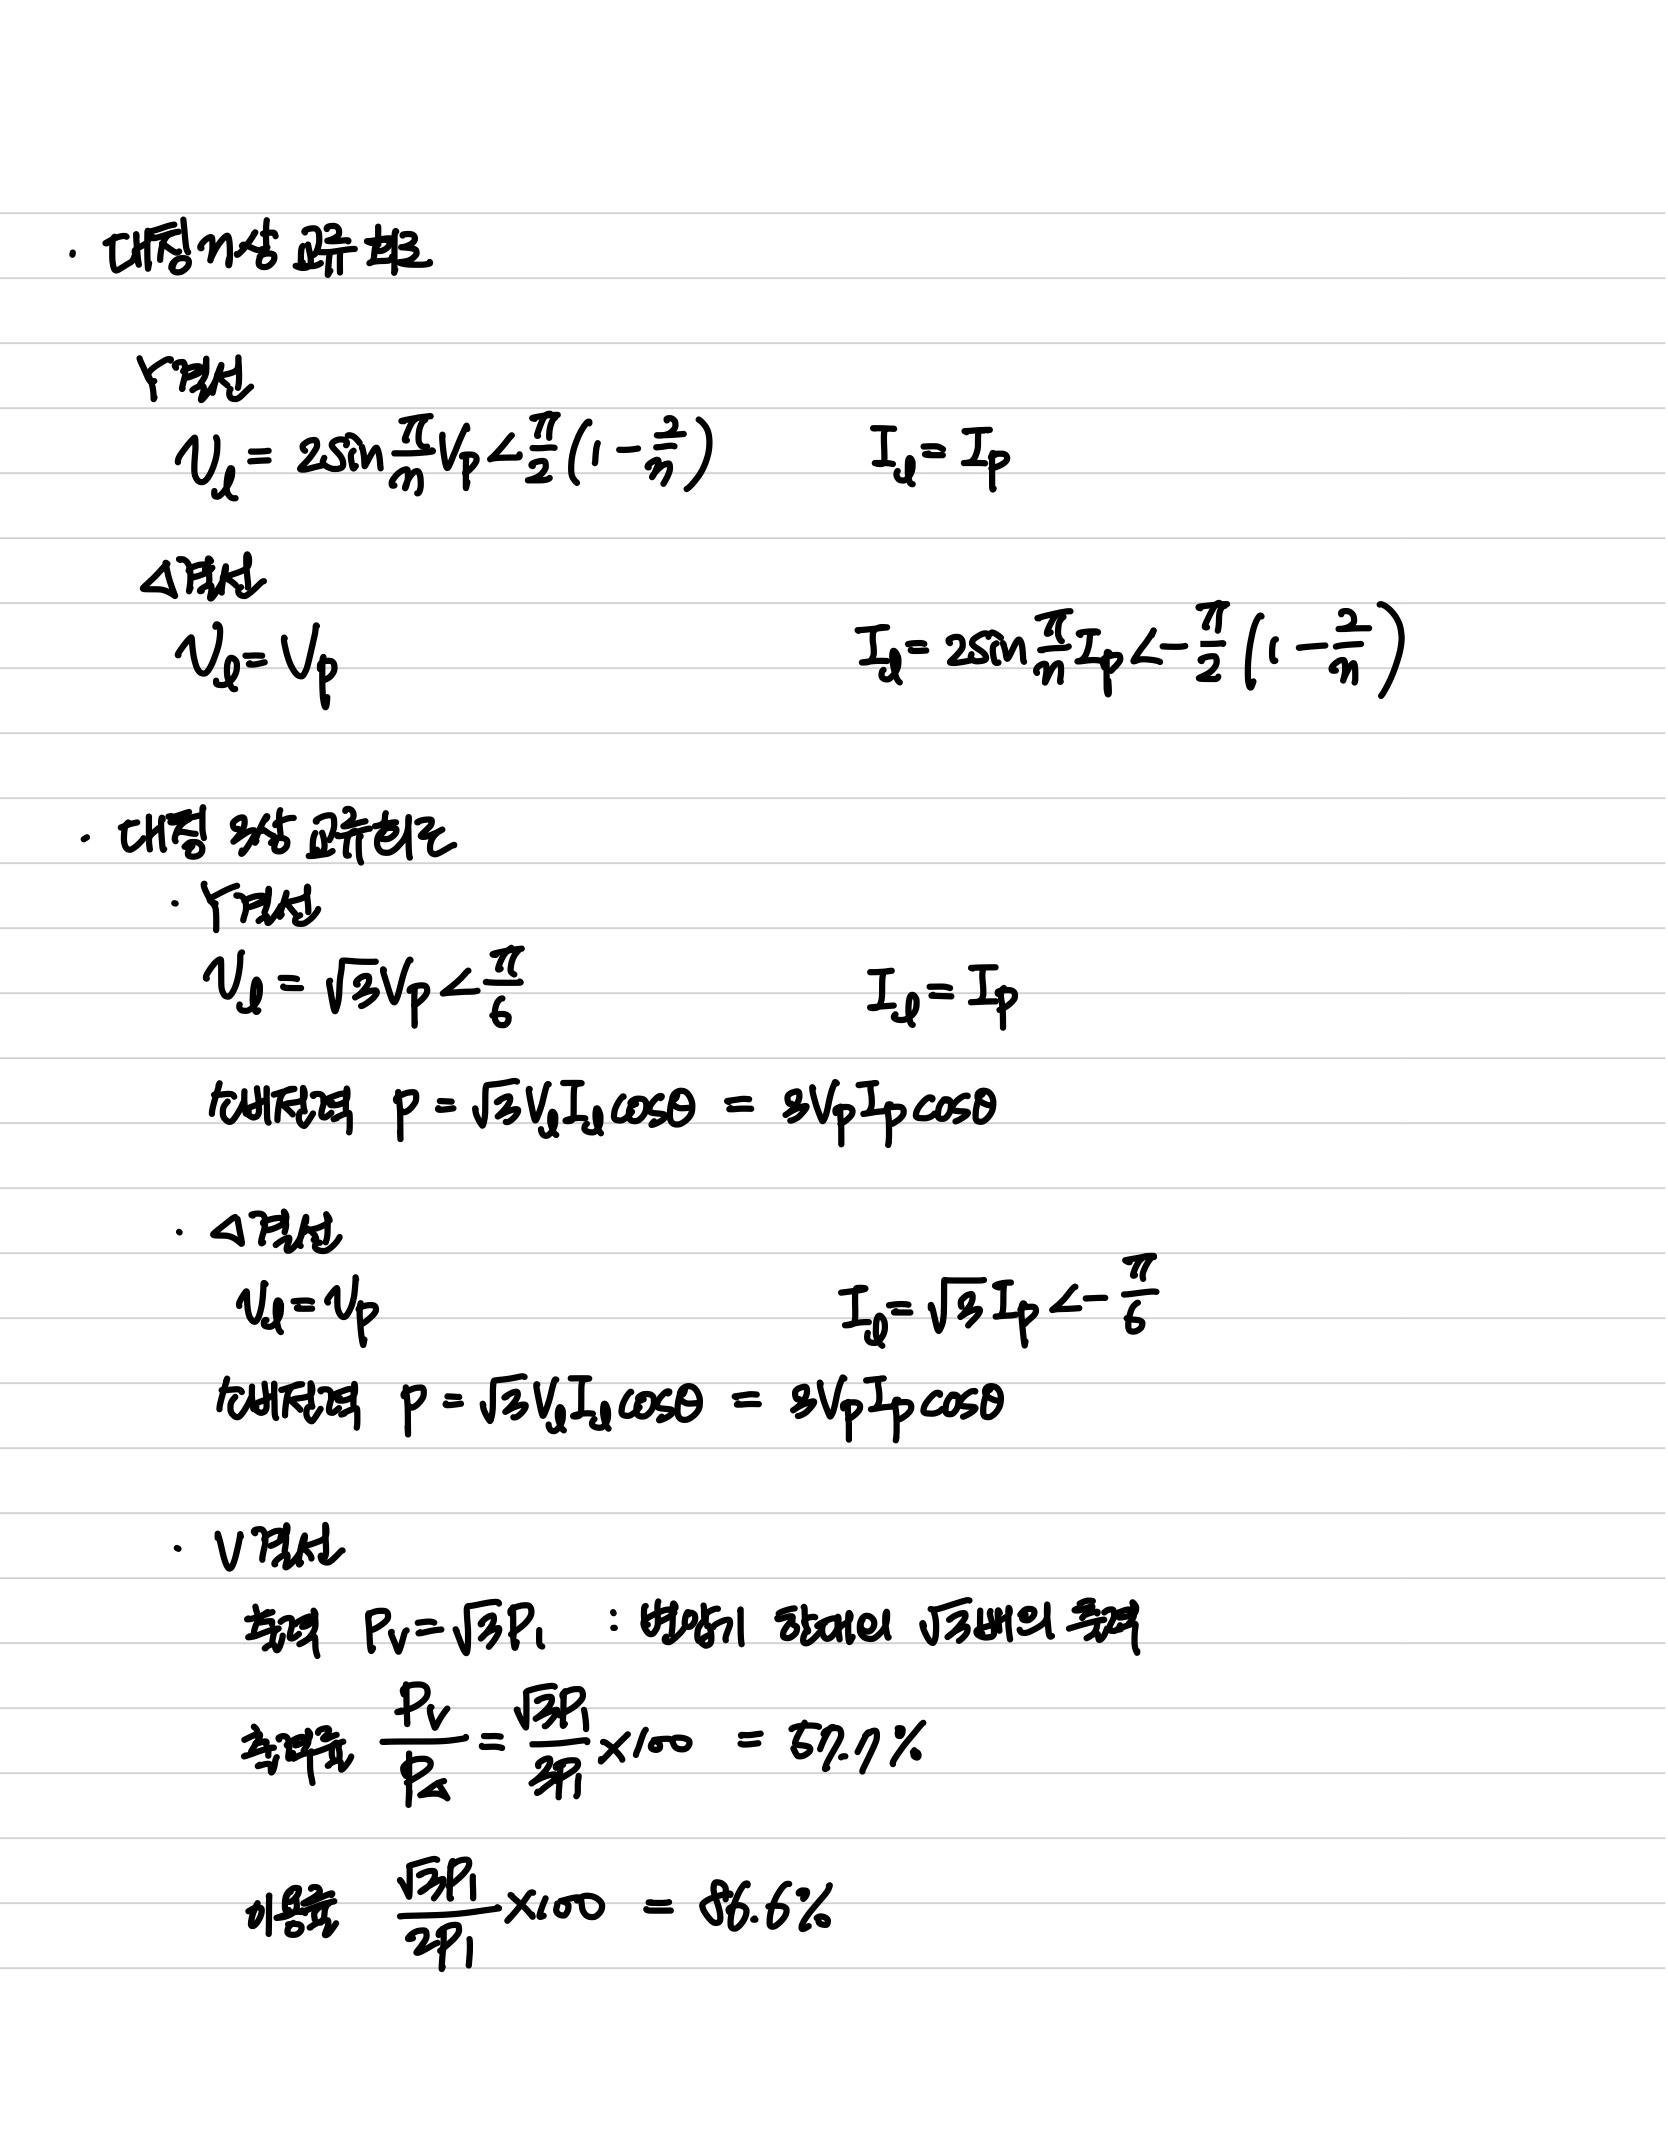 · 대칭 n상 교류 회로
Y결선
V_l = 2sin π/n V_p ∠ π/2 (1 - 2/n) I_l = I_p
△결선
V_l = V_p I_l = 2sin π/n I_p ∠ - π/2 (1 - 2/n)
· 대칭 3상 교류회로
· Y결선
V_l = √3 V_p ∠ π/6 I_l = I_p
소비전력 P = √3 V_l I_l cosθ = 3V_p I_p cosθ
· △결선
V_l = V_p I_l = √3 I_p ∠ - π/6
소비전력 P = √3 V_l I_l cosθ = 3V_p I_p cosθ
· V결선
출력 P_V = √3 P_1 : 변압기 한대의 √3배의 출력
출력률 P_V/P_△ = √3P_1/3P_1 ×100 = 57.7%
이용률 √3P_1/2P_1 ×100 = 86.6%